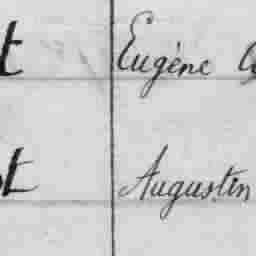 t Eugène
t Augustin